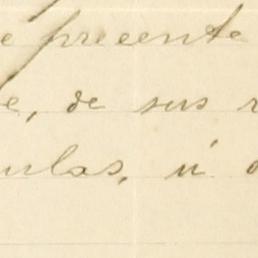 e preeente
e, de sus r
ulas, ú o